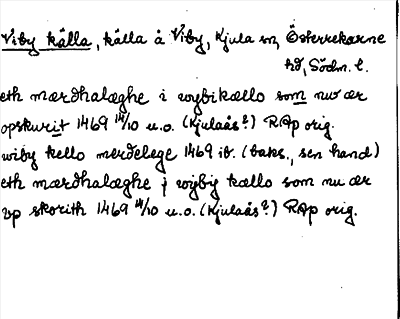 Viby källa, källa å Viby, Kjula sn, Österrekarne
hd, Södm. l.
eth mærdhalæghe i wybikællo som nw ær
opskurit 1469 14/10 u.o. (Kjulaås?) RAp orig.
wiby kello merdelege 1469 ib. (baks., sen hand)
eth mærdhalæghe j wyby kællo som nu ær
vp skorith 1469 14/10 u.o. (Kjulaås?) RAp orig.